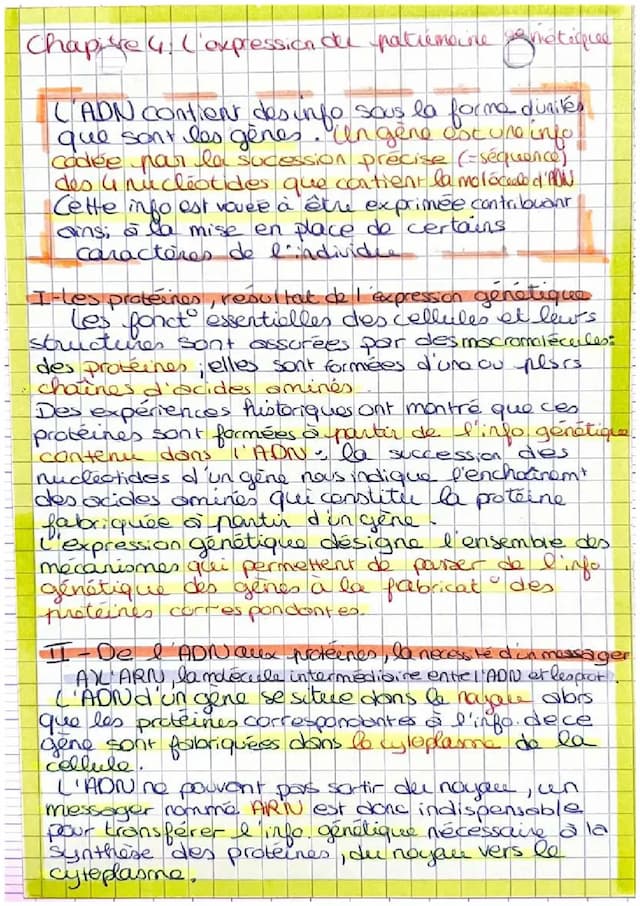 Chapitre 4: L'expression du patrimoine génétique
L'ADN contient des info sous la forme d'unités
que sont les gènes. Un gène est une info
codée par la sucession précise (=séquence)
des 4 nucléotides que contient la molécule d'ADN
Cette info est vouée à être exprimée contribuant
ainsi à la mise en place de certains
caractères de l'individu
I-Les protéines, résultat de l'expression génétique
Les fonct° essentielles des cellules et leurs
structures sont assurées par des macromolécules:
des protéines, elles sont formées d'une ou plsrs
chaînes d'acides aminés.
Des expériences historiques ont montré que ces
protéines sont formées à partir de l'info génétique
contenu dans l'ADN: la succession des
nucléotides d'un gène nous indique l'enchaînemt
des acides aminés qui constitu la protéine
fabriquée à partir d'un gène.
L'expression génétique désigne l'ensemble des
mécanismes qui permettent de passer de l'info
génétique des gènes à la fabricat° des
protéines correspondantes.
II-De l'ADN aux protéines, la nécessité d'un messager
A) L'ARN, la molécule intermédiaire entre l'ADN et les prot.
L'ADN d'un gène se situe dans le noyau alors
que les protéines correspondantes à l'info de ce
gène sont fabriquées dans le cytoplasme de la
cellule.
L'ADN ne pouvant pas sortir du noyau, un
messager nommé ARN est donc indispensable
pour transférer l'info génétique nécessaire à la
synthèse des protéines, du noyau vers le
cytoplasme.